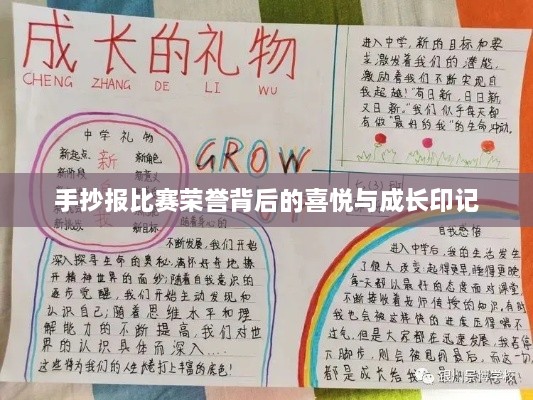 成长的礼物
CHENG ZHANG DE LI WU
进入中学，新的目标和要
求激发着我们的潜能，
激励着我们不断实现自
我超越！"有日新，日日新
又日新。"我们似乎每天都
有做"最好的我"的生命冲动。
中学礼物
新起点 新 新角色
GROW
手抄报比赛荣誉背后的喜悦与成长印记
不断发展，我们开始
深入探寻生命的奥秘，满怀好奇地撩
开精神世界的面纱；随着自我意识的
逐步觉醒，我们开始主动发现和
认识自己；随着思维水平和理
解能力的不断提高，我们对世
界的认识具体而深入……
这些将为我们的人生卷打上丰富的底色！
自我感悟
进入中学后，我的生活发生
了很大改变：起得更早，睡得更晚
每一天都以最好的态度面对课堂
不断接收着老师传授的知识，有时
我也会被这样快的进度压得喘不
过气，但是大家都在迅速发展，我若停
下脚步，则会被甩到最后，而这一切，
都是成长给我
银川景博学校